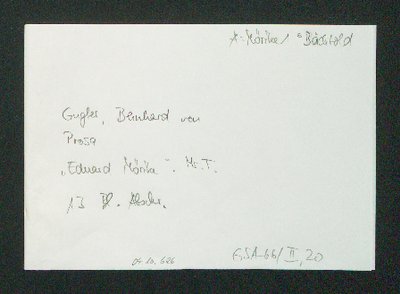 A: Mörike / Bächtold
Gugler, Bernhard von
Prosa
„Eduard Mörike“. Ms. T.
13 Bl. Abschr.
GSA-66/II,20